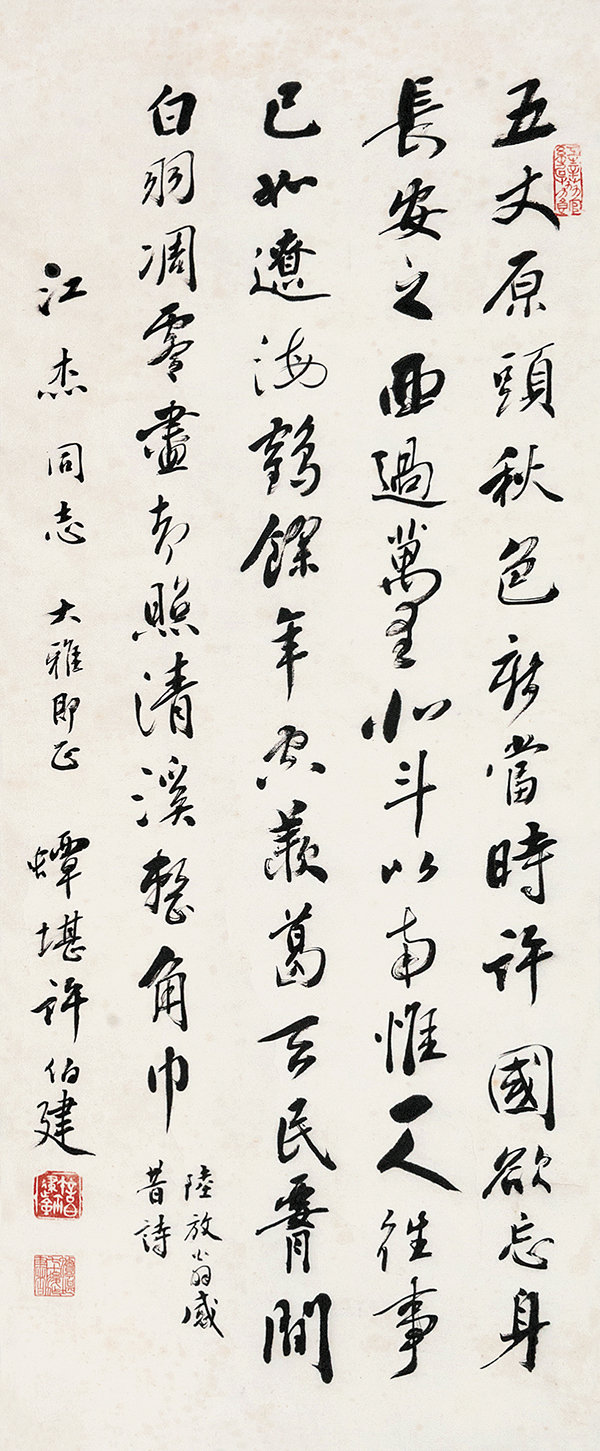 五丈原頭秋色新當時許國欲忘身
長安之西過萬里北斗以南惟一人往事
已如遼海鶴餘年空羨葛天民腰間
白羽凋零盡却照清溪整角巾
陸放翁感
昔詩
江杰同志 大雅即正 蟫堪許伯建